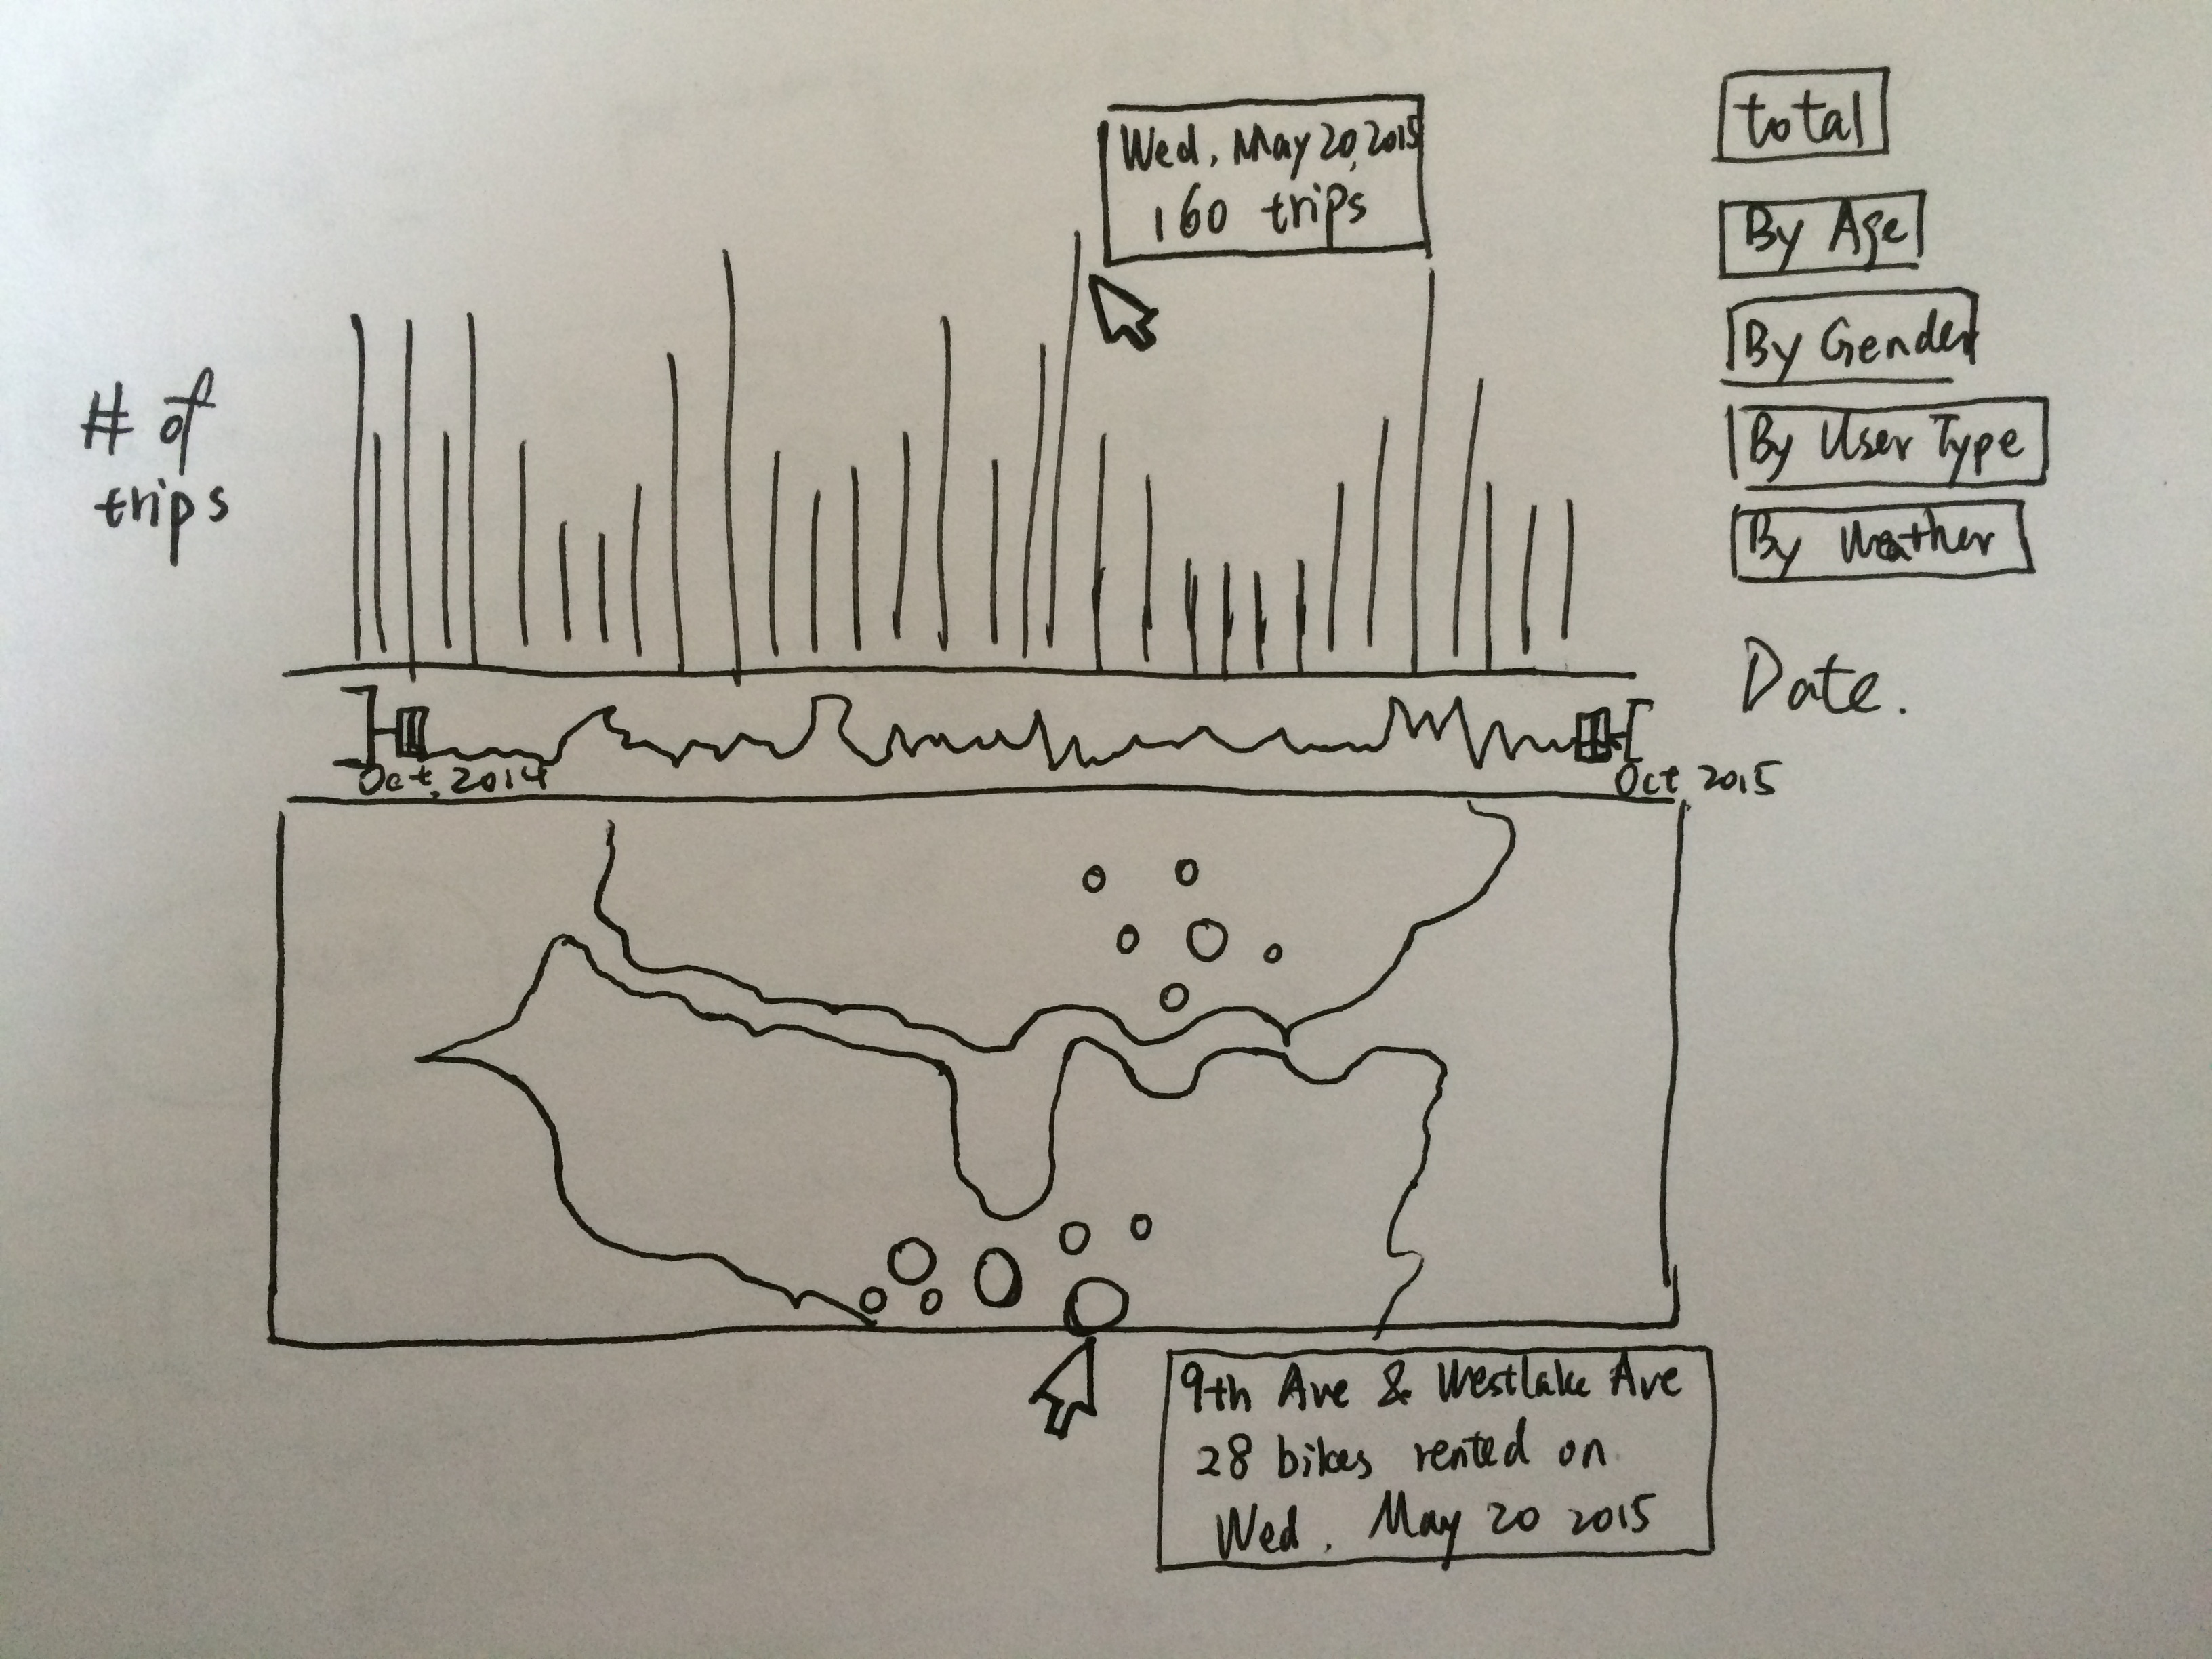 Wed, May 20, 2015
160 trips
total
By Age
By Gender
By User Type
By Weather
# of
trips
Date.
Oct, 2014
Oct 2015
9th Ave & Westlake Ave
28 bikes rented on
Wed. May 20 2015